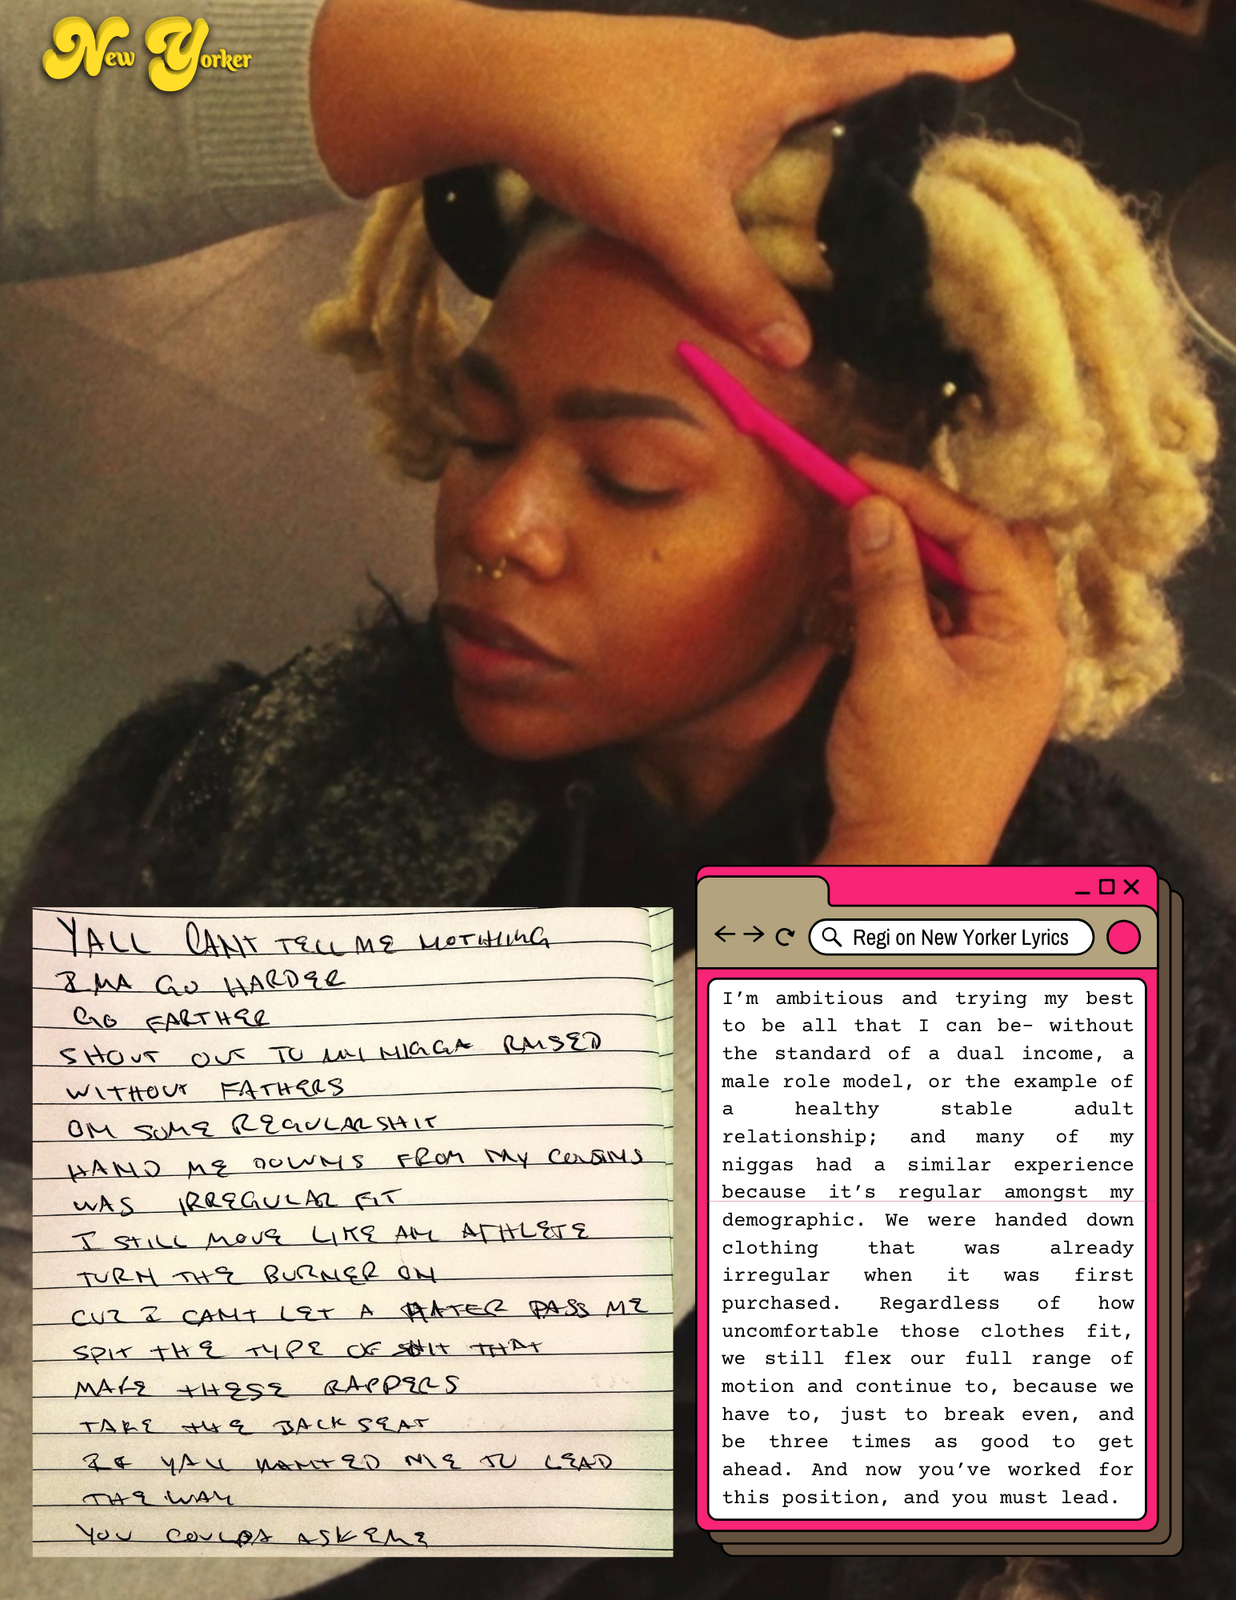 New Yorker
YALL CANT TELL ME NOTHING
IMA GO HARDER
GO FARTHER
SHOUT OUT TO MY NIGGA RAISED
WITHOUT FATHERS
ON SOME REGULAR SHIT
HAND ME DOWNS FROM MY COUSINS
WAS IRREGULAR FIT
I STILL MOVE LIKE AN ATHLETE
TURN THE BURNER ON
CUZ I CANT LET A HATER PASS ME
SPIT THE TYPE OF SHIT THAT
MAKE THESE RAPPERS
TAKE THE BACK SEAT
IF YALL WANTED ME TO LEAD
THE WAY
YOU COULDA ASKE ME
Regi on New Yorker Lyrics
I'm ambitious and trying my best
to be all that I can be- without
the standard of a dual income, a
male role model, or the example of
a healthy stable adult
relationship; and many of my
niggas had a similar experience
because it's regular amongst my
demographic. We were handed down
clothing that was already
irregular when it was first
purchased. Regardless of how
uncomfortable those clothes fit,
we still flex our full range of
motion and continue to, because we
have to, just to break even, and
be three times as good to get
ahead. And now you've worked for
this position, and you must lead.